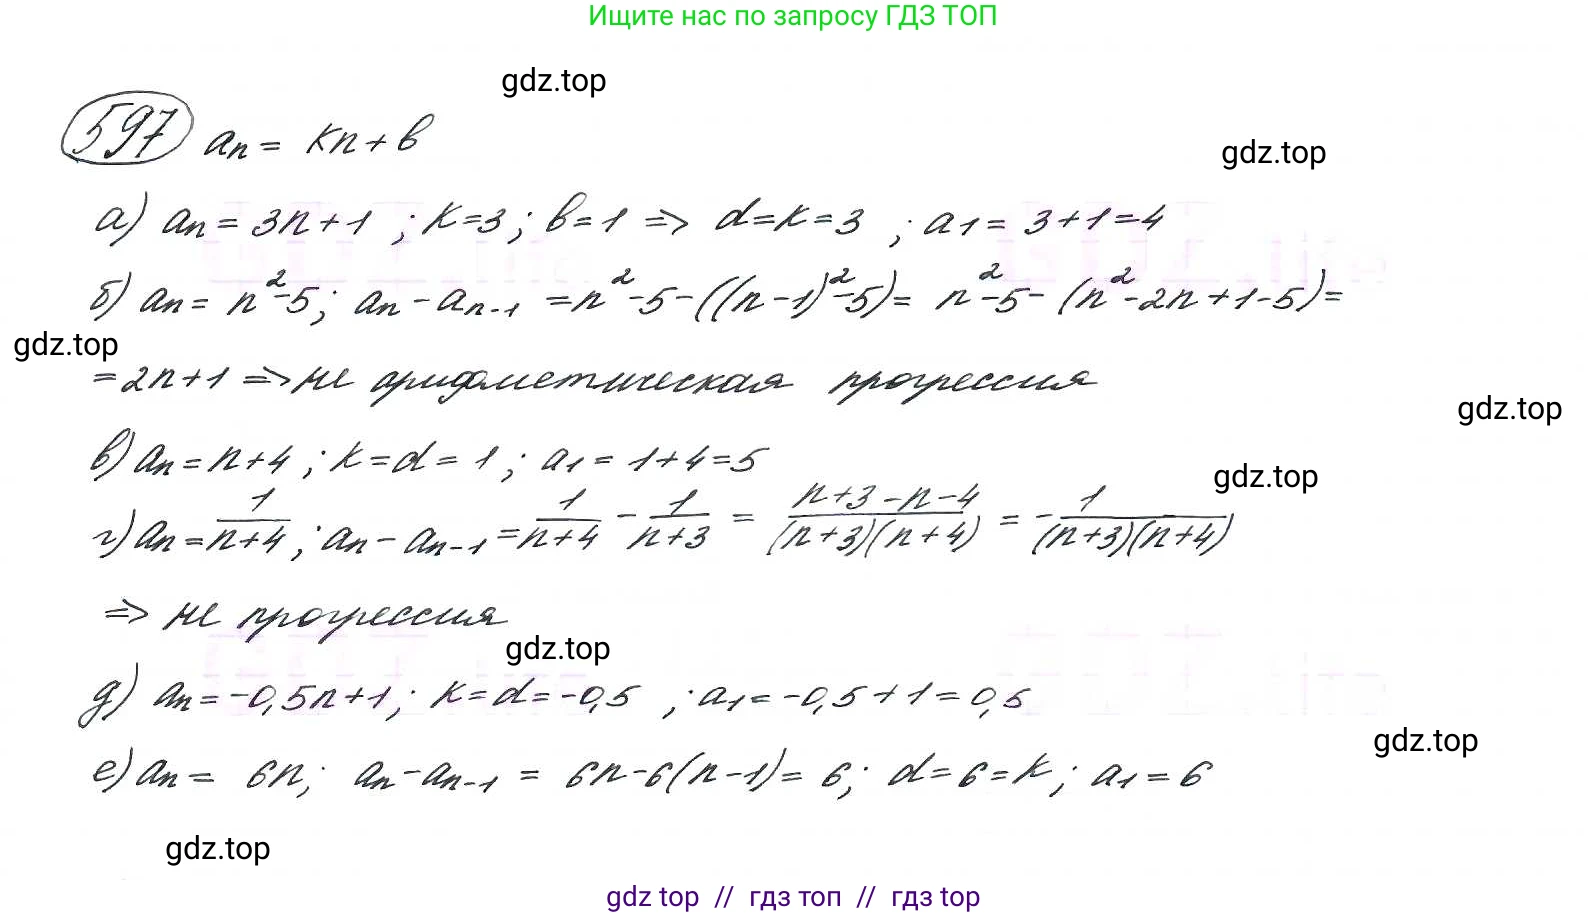 Ищите нас по запросу ГДЗ ТОП
gdz.top
597 aₙ = kn + b
gdz.top
а) aₙ = 3n + 1 ; k = 3 ; b = 1 => d = k = 3 ; a₁ = 3 + 1 = 4
б) aₙ = n² - 5; aₙ - aₙ₋₁ = n² - 5 - ((n - 1)² - 5) = n² - 5 - (n² - 2n + 1 - 5) =
gdz.top
= 2n + 1 => не арифметическая прогрессия
gdz.top
в) aₙ = n + 4 ; k = d = 1 ; a₁ = 1 + 4 = 5
gdz.top
г) aₙ = 1/(n + 4) ; aₙ - aₙ₋₁ = 1/(n + 4) - 1/(n + 3) = (n + 3 - n - 4)/((n + 3)(n + 4)) = - 1/((n + 3)(n + 4))
=> не прогрессия
gdz.top
д) aₙ = -0,5n + 1 ; k = d = -0,5 ; a₁ = -0,5 + 1 = 0,5
gdz.top
е) aₙ = 6n; aₙ - aₙ₋₁ = 6n - 6(n - 1) = 6; d = 6 = k ; a₁ = 6
gdz.top
gdz top // гдз топ // гдз top